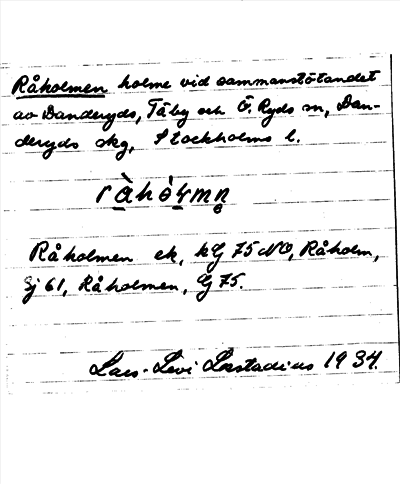 Råholmen holme vid sammanstötandet
av Danderyds, Täby och Ö. Ryds sn, Dan-
deryds skg, Stockholms l.
råhòɽmn̥
Råholmen ek, kG 75 NO, Råholm,
Gj 61, Råholmen, G 75.
Lars-Levi Læstadius 1934.